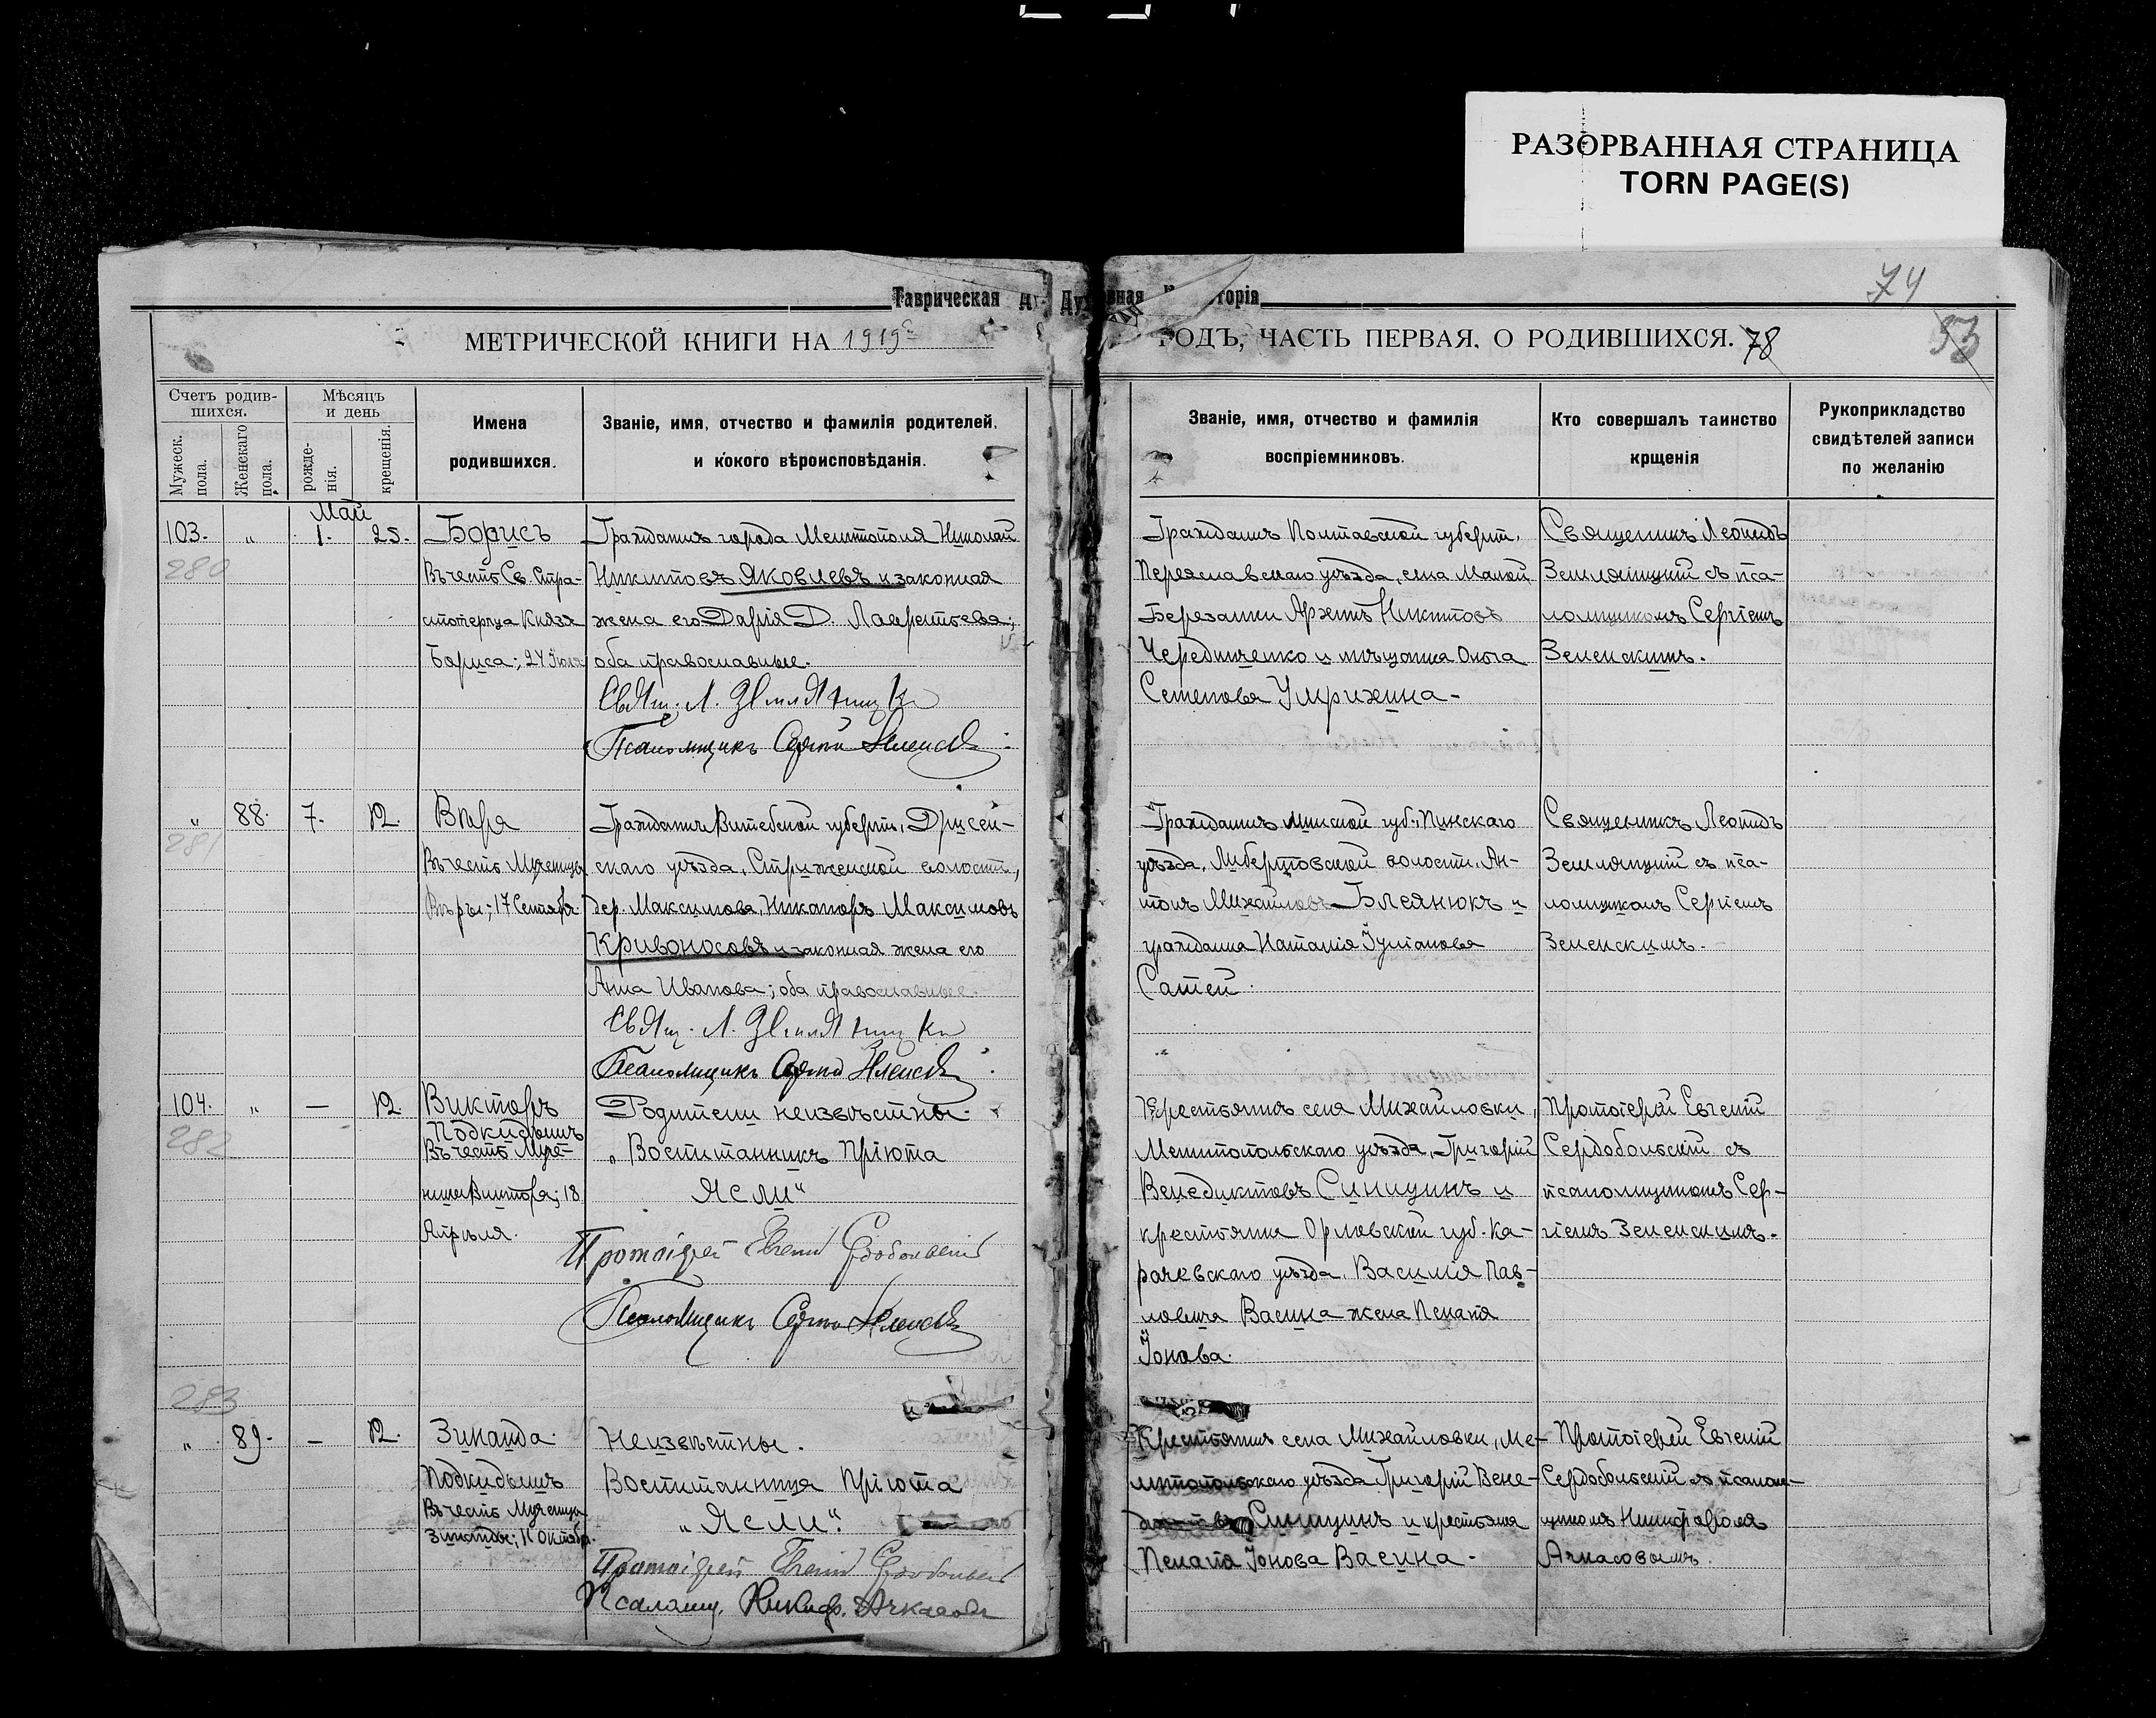 РАЗОРВАННАЯ СТРАНИЦА
TORN PAGE(S)
74
Таврическая Ду вная торія
МЕТРИЧЕСКОЙ КНИГИ НА 1919г
ГОДЪ, ЧАСТЬ ПЕРВАЯ, О РОДИВШИХСЯ. 78
53
Счетъ родив-
шихся.
Мужеск. пола.
Женскаго пола.
Мѣсяцъ
и день
рожде-
нія.
крещенія.
Имена
родившихся.
Званіе, имя, отчество и фамилія родителей,
и кокого вѣроисповѣданія.
Званіе, имя, отчество и фамилія
воспріемниковъ.
Кто совершалъ таинство
крщенія
Рукоприкладство
свидѣтелей записи
по желанію
103.
280
"
Май
1.
25.
Борисъ
Въ честь Св. Стра-
стотерпца Князя
Бориса; 24 Іюля
Гражданинъ города Мелитополя Николай
Никитовъ Яковлевъ и законная
жена его Дарія Д. Лаврентьева;
оба православные.
Свящ. Л. Земляницкій
Псаломщикъ Сергій Зеленскій
Гражданинъ Полтавской губерніи,
Переяславскаго уѣзда, села Малой
Березанки Архипъ Никитовъ
Чередниченко и мѣщанка Ольга
Семенова Умрихина -
Священникъ Леонидъ
Земляницкій съ пса-
ломщикомъ Сергіемъ
Зеленскимъ.
"
281
88.
7.
12.
Вѣра
Въ честь Мученицы
Вѣры; 17 Сентября.
Гражданинъ Витебской губерніи, Дрисен-
скаго уѣзда, Стриженской волости,
дер. Максимова, Никаноръ Максимовъ
Кривоносовъ и законная жена его
Анна Иванова; оба православные.
Свящ. Л. Земляницкій
Псаломщикъ Сергій Зеленскій
Гражданинъ Минской губ., Пинскаго
уѣзда, волости, Ан-
тонъ Михайловъ Блеянюкъ и
гражданка Наталія Іуліанова
Сатей.
Священникъ Леонидъ
Земляницкій съ пса-
ломщикомъ Сергіемъ
Зеленскимъ.
104.
282
"
—
12
Викторъ
Подкидышъ
Въ честь Муче-
ника Виктора; 18
Апрѣля.
Родители неизвѣстны.
„Воспитанникъ Пріюта
Ясли“
Протоіерей Евгеній Сердобольскій
Псаломщикъ Сергій Зеленскій
Крестьянинъ села Михайловки,
Мелитопольскаго уѣзда, Григорій
Венедиктовъ Синицинъ и
крестьянина Орловской губ. Ка-
рачевскаго уѣзда, Василія Пав-
ловича Васина жена Пелагія
Іонова.
Протоіерей Евгеній
Сердобольскій съ
псаломщикомъ Сер-
гіемъ Зеленскимъ.
283
"
89.
—
12.
Зинаида.
Подкидышъ
Въ честь Мученицы
Зинаиды; 11 Октября.
Неизвѣстны.
Воспитанница Пріюта
„Ясли“.
Протоіерей Евгеній Сердобольскій
Псаломщ. Никиф. Ачкасовъ
Крестьянинъ села Михайловки, Ме-
литопольскаго уѣзда Григорій Вене-
диктовъ Синицинъ и крестьянка
Пелагія Іонова Васина.
Протоіерей Евгеній
Сердобольскій съ псалом-
щикомъ Никифоромъ
Ачкасовымъ.